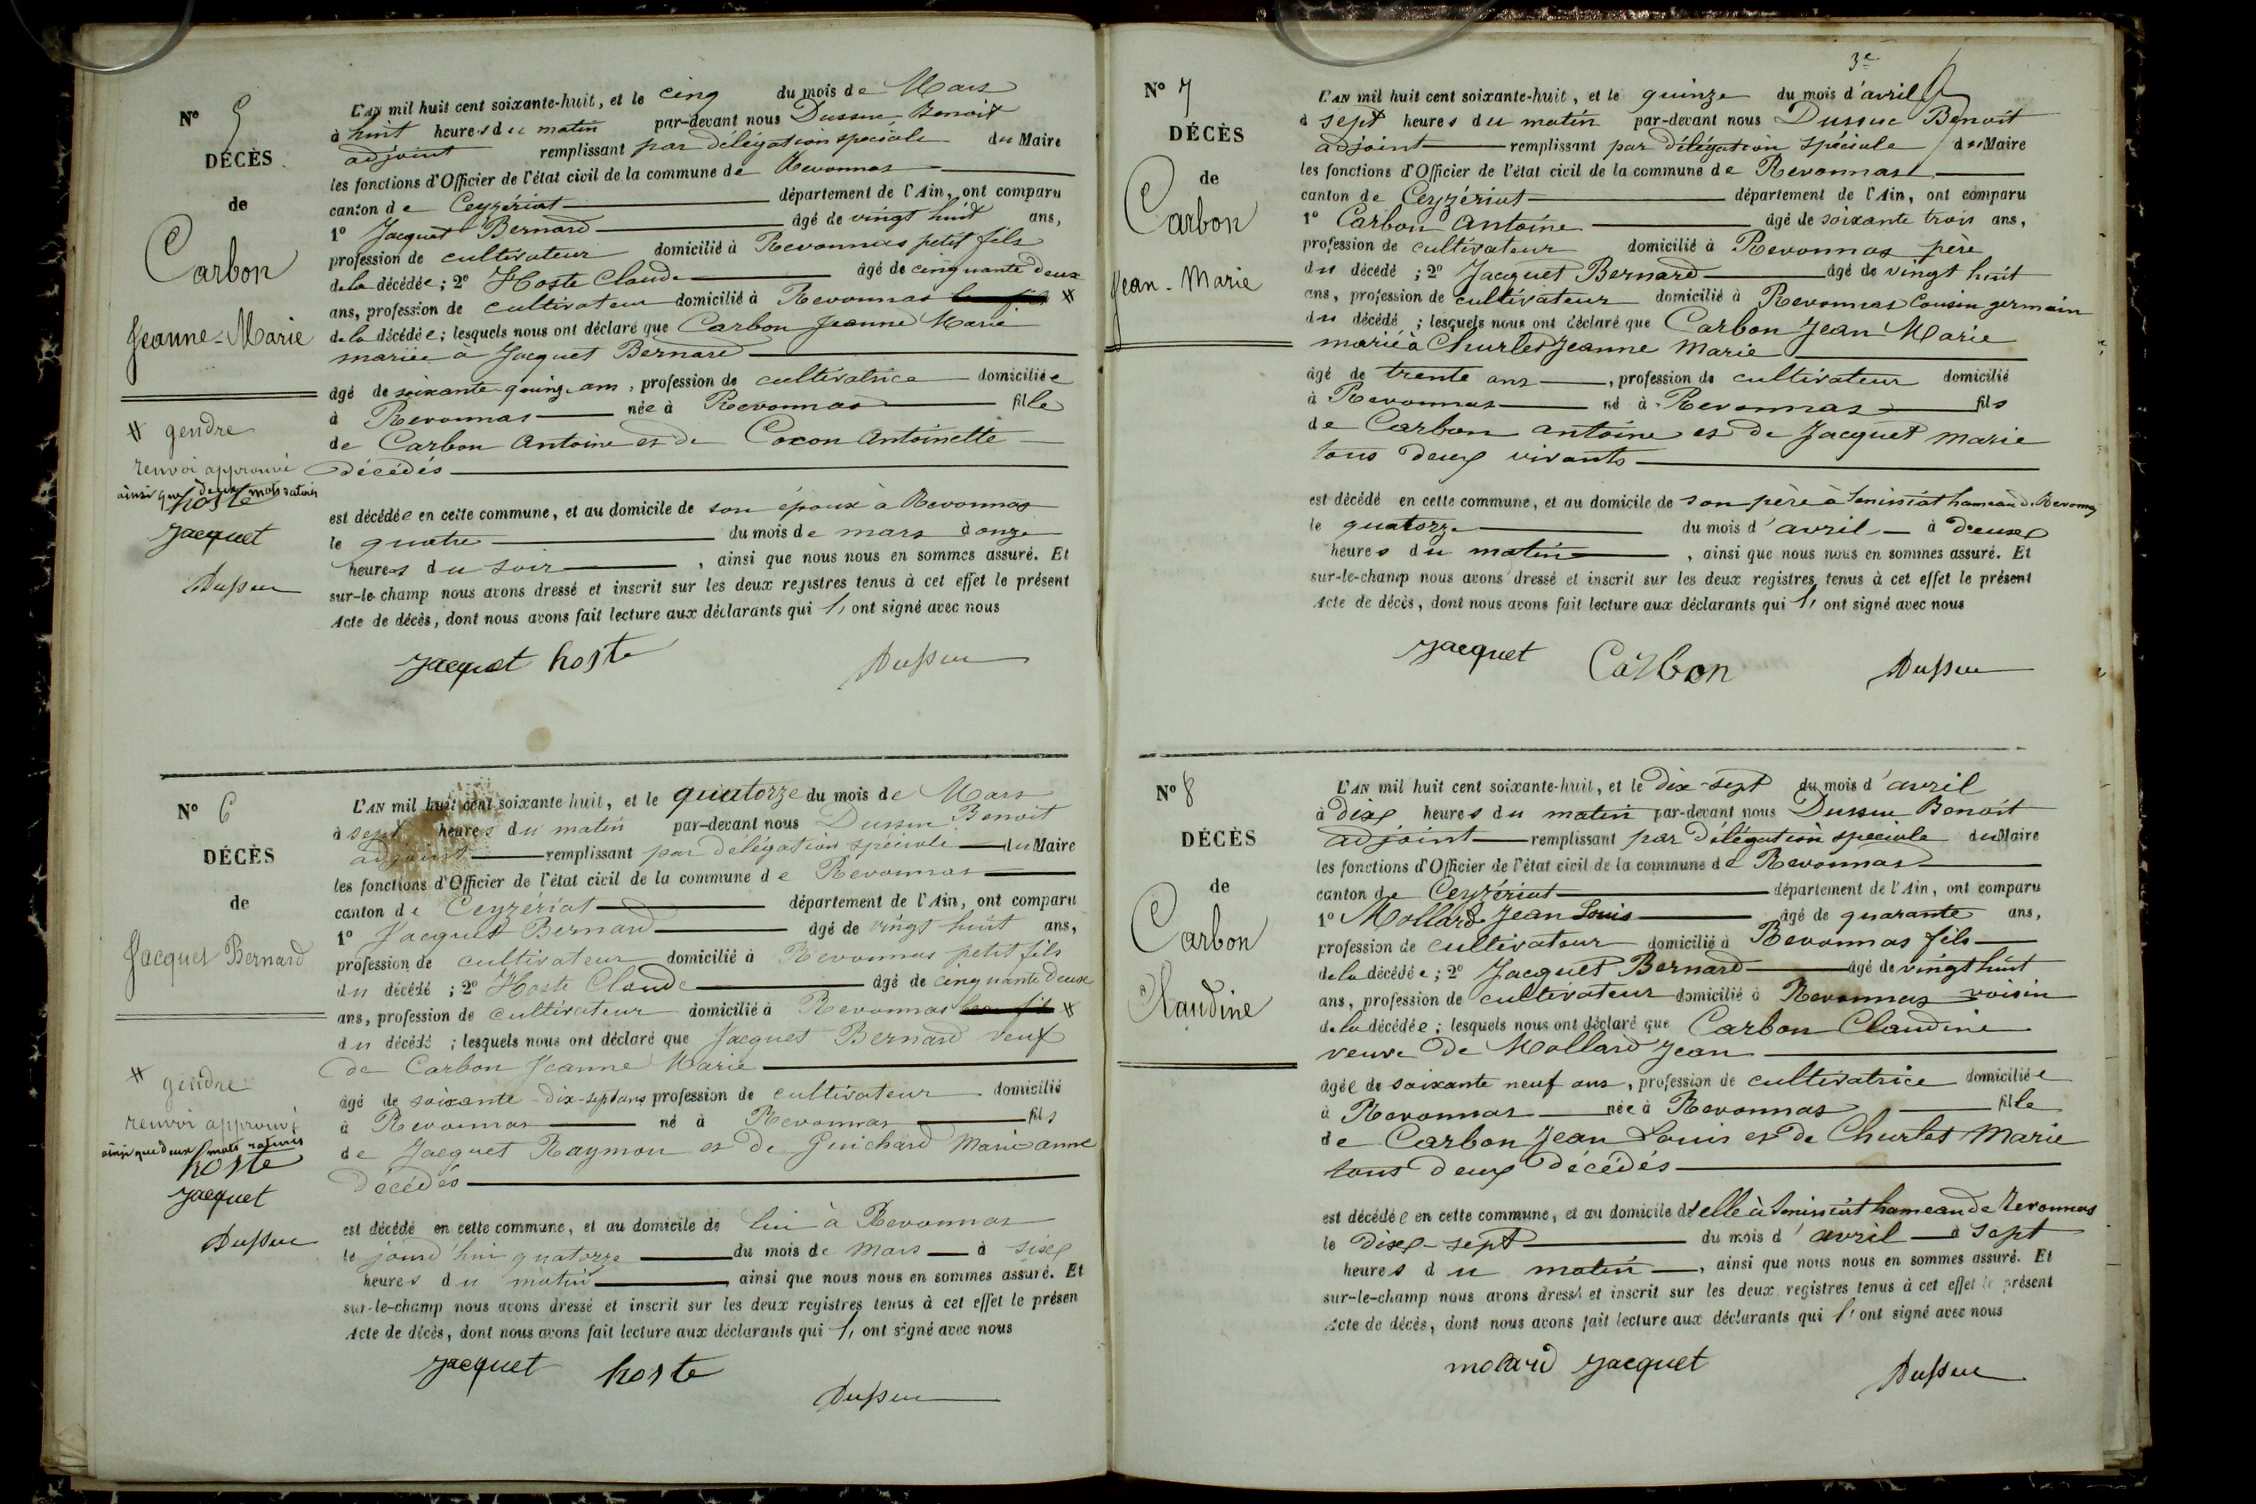 N° 5
DÉCÈS
de
Carbon
Jeanne-Marie
gendre
renvoi approuvé
ainsi que deux mots raturés
hoste
Jacquet
Dussuc
L'AN mil huit cent soixante-huit, et le cinq du mois de Mars
à huit heures du matin par-devant nous Dussuc Benoit
adjoint remplissant par délégation spéciale du Maire
les fonctions d'Officier de l'état civil de la commune de Revonnas
canton de Ceyzériat département de l'Ain, ont comparu
1° Jacquet Bernard âgé de vingt huit ans,
profession de cultivateur domicilié à Revonnas petit fils
de la décédée; 2° Hoste Claude âgé de cinquante deux
ans, profession de cultivateur domicilié à Revonnas
de la décédée; lesquels nous ont déclaré que Carbon Jeanne Marie
mariée à Jacquet Bernard
âgé de soixante quinze ans, profession de cultivatrice domiciliée
à Revonnas née à Revonnas fille
de Carbon Antoine et de Coxon Antoinette
décédés
est décédée en cette commune, et au domicile de son époux à Revonnas
le quatre du mois de mars à onze
heures du soir, ainsi que nous nous en sommes assuré. Et
sur-le-champ nous avons dressé et inscrit sur les deux registres tenus à cet effet le présent
Acte de décès, dont nous avons fait lecture aux déclarants qui l'ont signé avec nous
Jacquet hoste Dussuc
N° 6
DÉCÈS
de
Jacquet Bernard
gendre
renvoi approuvé
ainsi que deux mots raturés
hoste
Jacquet
Dussuc
L'AN mil huit cent soixante-huit, et le quatorze du mois de Mars
à sept heures du matin par-devant nous Dussuc Benoit
adjoint remplissant par délégation spéciale du Maire
les fonctions d'Officier de l'état civil de la commune de Revonnas
canton de Ceyzériat département de l'Ain, ont comparu
1° Jacquet Bernard âgé de vingt huit ans,
profession de cultivateur domicilié à Revonnas petit fils
du décédé; 2° Hoste Claude âgé de cinquante deux
ans, profession de cultivateur domicilié à Revonnas
du décédé; lesquels nous ont déclaré que Jacquet Bernard veuf
de Carbon Jeanne Marie
âgé de soixante-dix-sept ans profession de cultivateur domicilié
à Revonnas né à Revonnas fils
de Jacquet Raymon et de Guichard Marie anne
Décédés
est décédé en cette commune, et au domicile de lui à Revonnas
le jourd'hui quatorze du mois de mars à six
heures du matin, ainsi que nous nous en sommes assuré. Et
sur-le-champ nous avons dressé et inscrit sur les deux registres tenus à cet effet le présen
Acte de décès, dont nous avons fait lecture aux déclarants qui l'ont signé avec nous
Jacquet hoste
Dussuc
3e
N° 7
DÉCÈS
de
Carbon
Jean-Marie
L'AN mil huit cent soixante-huit, et le quinze du mois d'avril
à sept heures du matin par-devant nous Dussuc Benoit
adjoint remplissant par délégation spéciale du Maire
les fonctions d'Officier de l'état civil de la commune de Revonnas
canton de Ceyzériat département de l'Ain, ont comparu
1° Carbon Antoine âgé de soixante trois ans,
profession de cultivateur domicilié à Revonnas père
du décédé; 2° Jacquet Bernard âgé de vingt huit
ans, profession de cultivateur domicilié à Revonnas Cousin germain
du décédé; lesquels nous ont déclaré que Carbon Jean Marie
marié à Churlet Jeanne Marie
âgé de trente ans, profession de cultivateur domicilié
à Revonnas né à Revonnas fils
de Carbon antoine et de Jacquet marie
tous deux vivants
est décédé en cette commune, et au domicile de son père à Senissiat hameau de Revonnas
le quatorze du mois d'avril à deux
heures du matin, ainsi que nous nous en sommes assuré. Et
sur-le-champ nous avons dressé et inscrit sur les deux registres tenus à cet effet le présent
Acte de décès, dont nous avons fait lecture aux déclarants qui l'ont signé avec nous
Jacquet Carbon Dussuc
N° 8
DÉCÈS
de
Carbon
Claudine
L'AN mil huit cent soixante-huit, et le dix-sept du mois d'avril
à dix heures du matin par-devant nous Dussuc Benoit
adjoint remplissant par délégation spéciale du Maire
les fonctions d'Officier de l'état civil de la commune de Revonnas
canton de Ceyzériat département de l'Ain, ont comparu
1° Mollard Jean Louis âgé de quarante ans,
profession de cultivateur domicilié à Revonnas fils
de la décédée; 2° Jacquet Bernard âgé de vingt huit
ans, profession de cultivateur domicilié à Revonnas voisin
de la décédée; lesquels nous ont déclaré que Carbon Claudine
veuve de Mollard Jean
âgée de soixante neuf ans, profession de cultivatrice domiciliée
à Revonnas née à Revonnas fille
de Carbon Jean Louis et de Churlet Marie
tous deux décédés
est décédée en cette commune, et au domicile d'elle à Senissiat hameau de Revonnas
le dix-sept du mois d'avril à sept
heures du matin, ainsi que nous nous en sommes assuré. Et
sur-le-champ nous avons dressé et inscrit sur les deux registres tenus à cet effet le présent
Acte de décès, dont nous avons fait lecture aux déclarants qui l'ont signé avec nous
molard Jacquet Dussuc